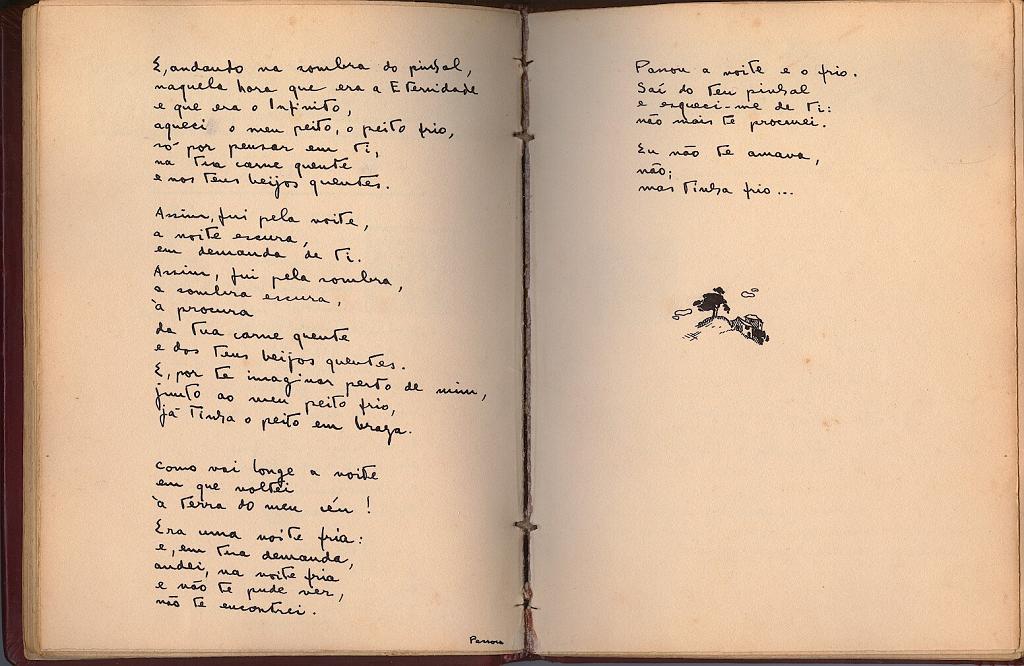 E, andando na sombra do pinhal,
naquela hora que era a Eternidade
e que era o Infinito,
aqueci o meu peito, o peito frio,
só por pensar em ti,
na tua carne quente
e nos teus beijos quentes.
Assim, fui pela noite,
a noite escura,
em demanda de ti.
Assim, fui pela sombra,
a sombra escura,
à procura
da tua carne quente
e dos teus beijos quentes.
E, por te imaginar perto de mim,
junto ao meu peito frio,
já tinha o peito em brasa.
Como vai longe a noite
em que voltei
à terra do meu céu!
Era uma noite fria:
e, em tua demanda,
andei, na noite fria
e não te pude ver,
não te encontrei.
Passou
Passou a noite e o frio.
Saí do teu pinhal
e esqueci-me de ti:
não mais te procurei.
Eu não te amava,
não;
mas tinha frio...